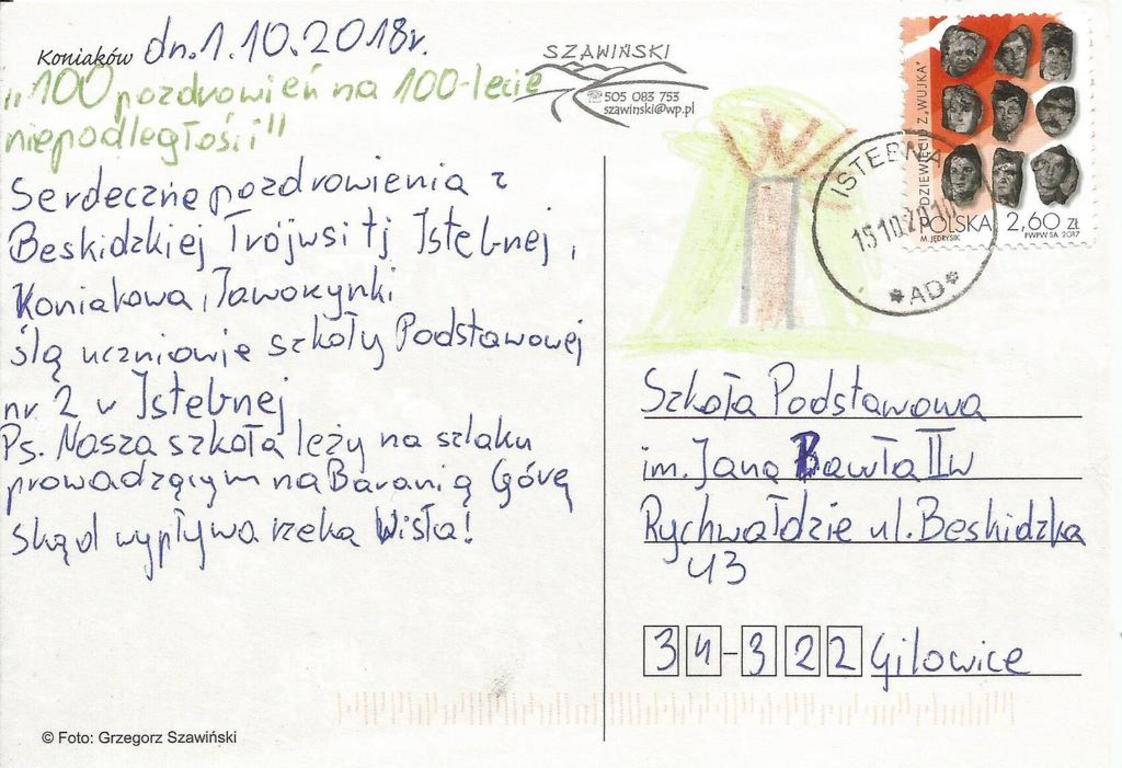 Koniaków dn.1.10.2018r.
"100 pozdrowień na 100-lecie
niepodległości"
Serdeczne pozdrowienia z
Beskidzkiej Trójwsi tj Istebnej,
Koniakowa, Jaworzynki
ślą uczniowie szkoły Podstawowej
nr 2 w Istebnej
Ps. Nasza szkoła leży na szlaku
prowadzącym na Baranią Górę
skąd wypływa rzeka Wisła!
© Foto: Grzegorz Szawiński
SZAWIŃSKI
☎505 083 753
szawinski@wp.pl
DZIEWIĘCIU Z „WUJKA”
POLSKA 2,60 ZŁ
M. JĘDRYSIK PWPW SA 2017
ISTEBNA
*AD*
Szkoła Podstawowa
im. Jana Pawła II w
Rychwałdzie ul. Beskidzka
43
34-322 Gilowice